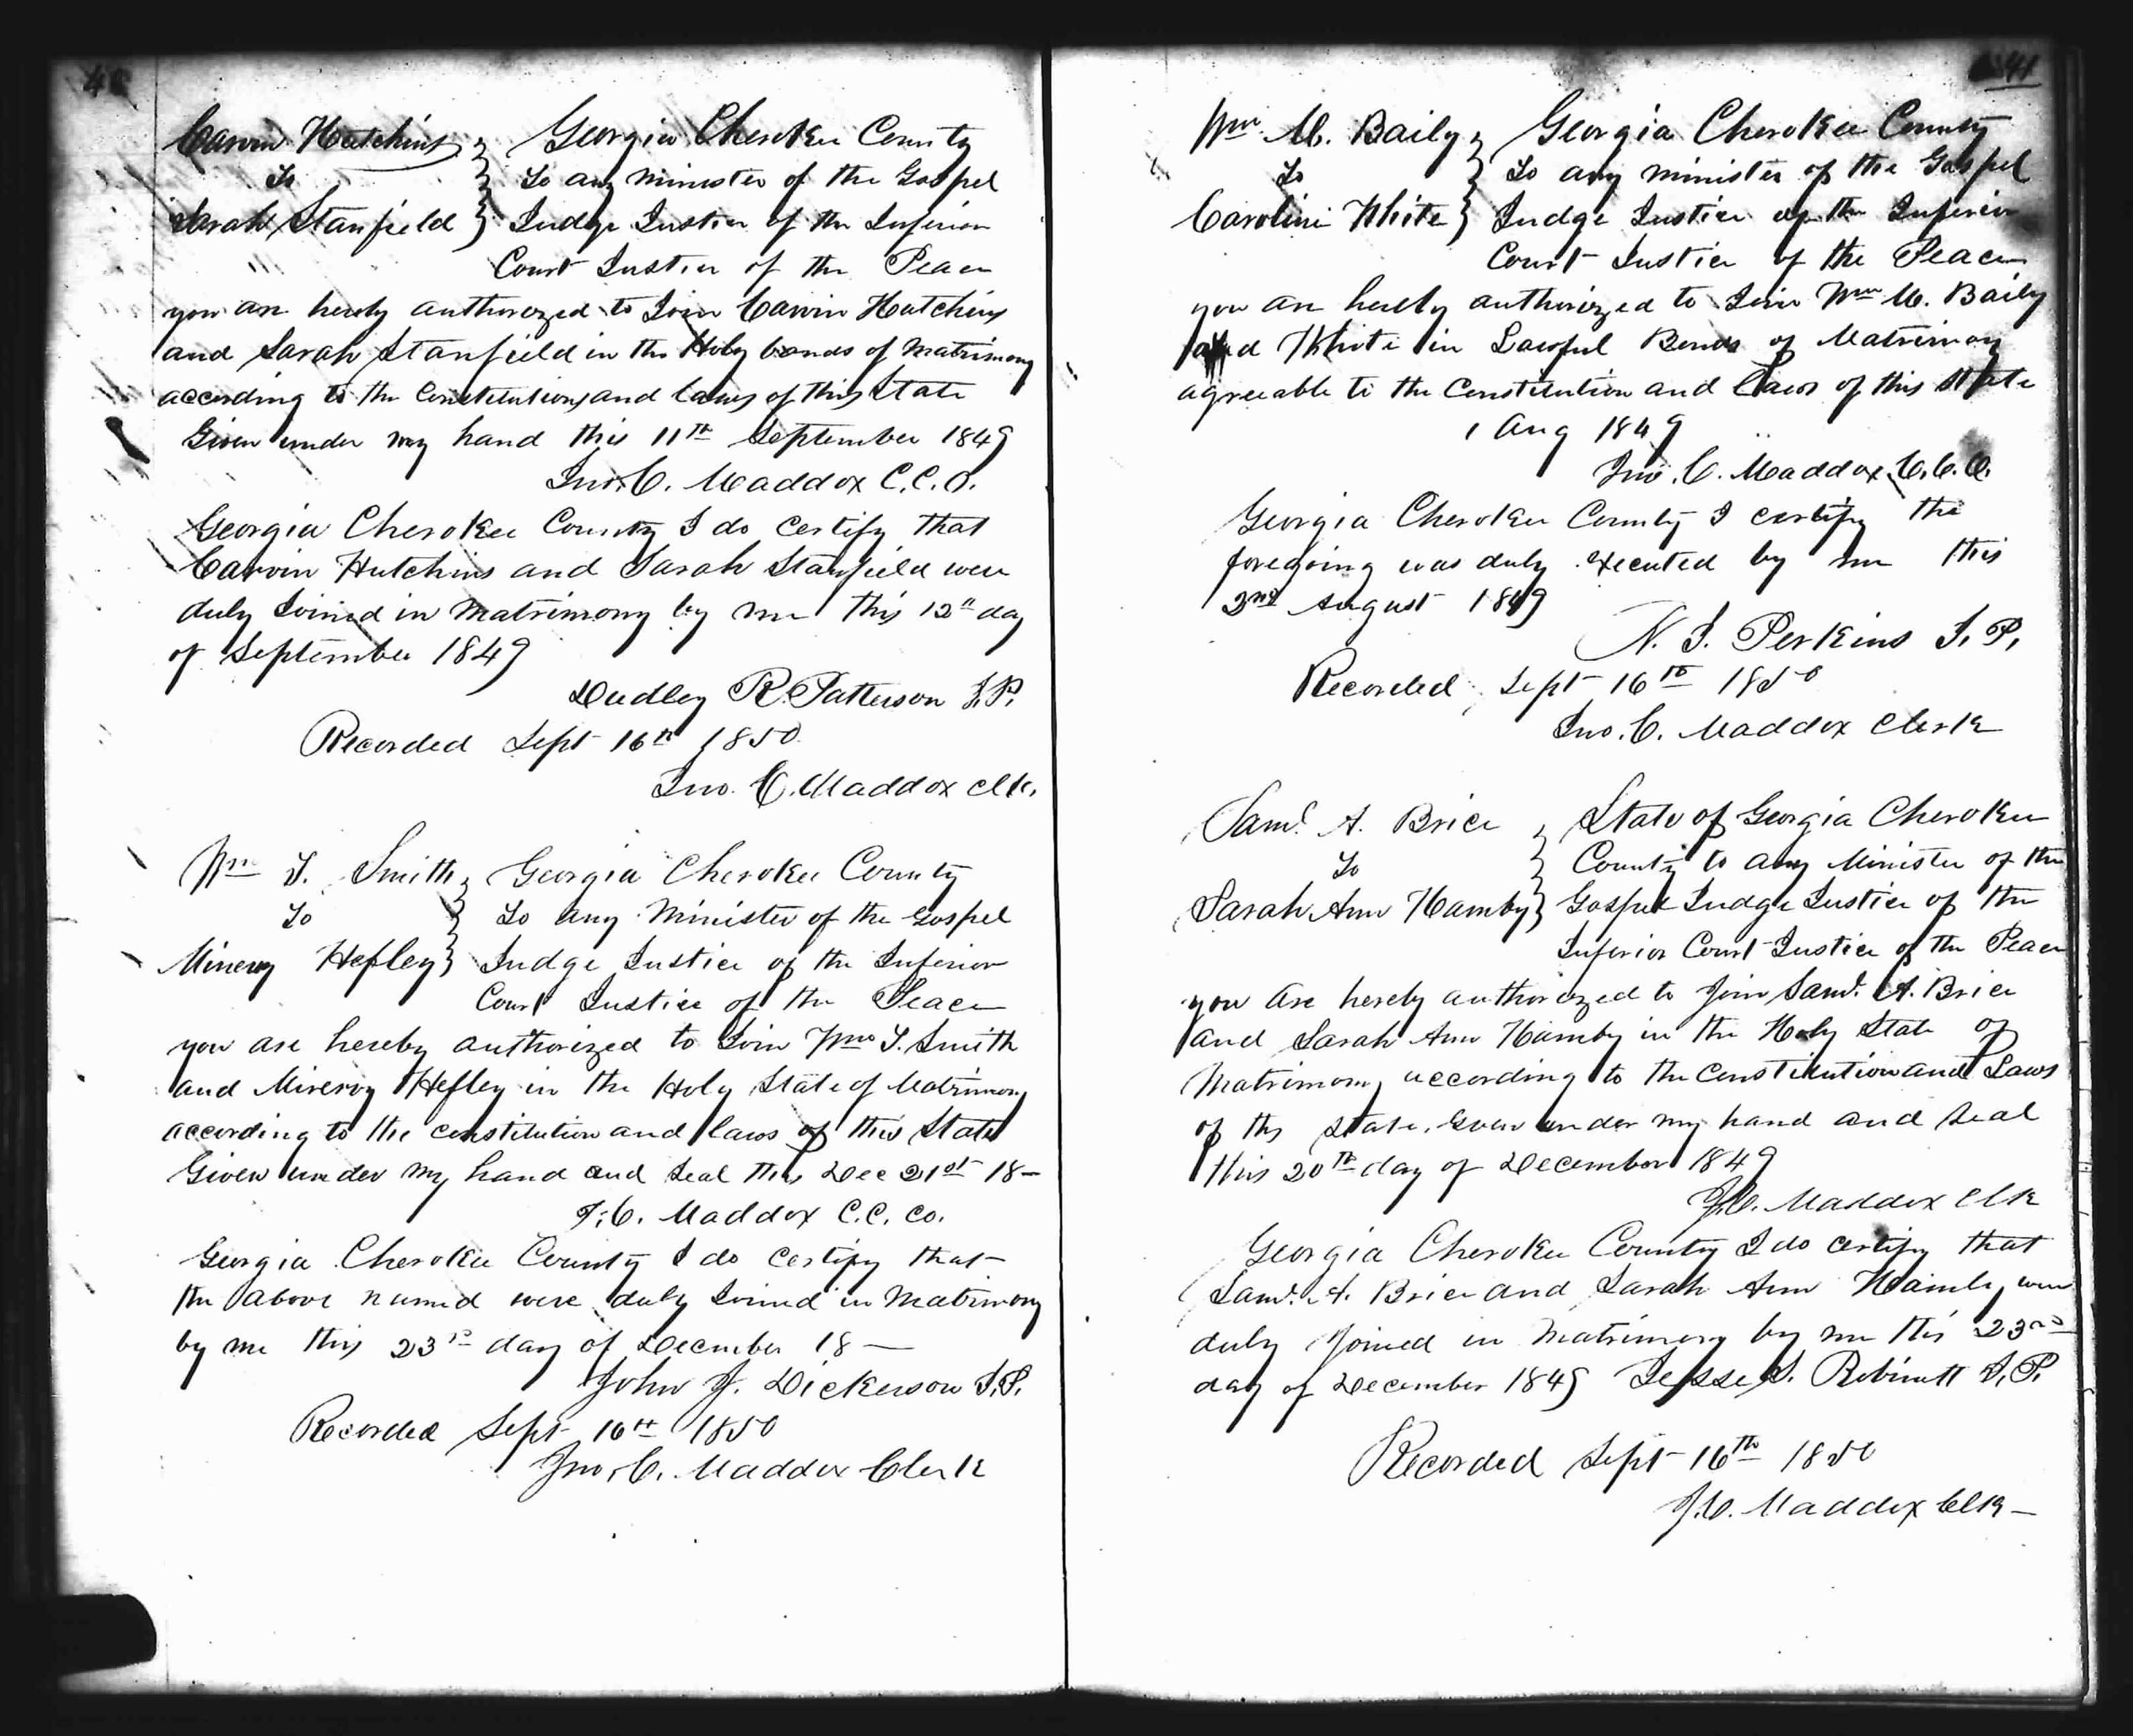 40
Carvin Hutchins Georgia Cherokee County
To To any minister of the Gospel
Sarah Stanfield Judge Justice of the Inferior
Court Justice of the Peace
you are hereby authorized to Join Carvin Hutchins
and Sarah Stanfield in the Holy bonds of Matrimony
according to the Constitution and laws of this State
Given under my hand this 11th September 1849
Jno. C. Maddox C.C.O.
Georgia Cherokee County I do certify that
Carvin Hutchins and Sarah Stanfield were
duly Joined in Matrimony by me this 12th day
of September 1849
Dudley R. Patterson J.P.
Recorded Sept 16th 1850
Jno. C. Maddox Clk.
Wm T. Smith Georgia Cherokee County
To To any Minister of the Gospel
Minervy Hefley Judge Justice of the Inferior
Court Justice of the Peace
you are hereby authorized to Join Wm T. Smith
and Minervy Hefley in the Holy State of Matrimony
according to the constitution and laws of this State
Given under my hand and seal this Dec 21st 18—
J. C. Maddox C.C. Co.
Georgia Cherokee County I do certify that
the above named were duly Joined in Matrimony
by me this 23rd day of December 18—
John J. Dickerson J.P.
Recorded Sept 16th 1850
Jno. C. Maddox Clerk
41
Wm M. Baily Georgia Cherokee County
To To any minister of the Gospel
Caroline White Judge Justice of the Inferior
Court Justice of the Peace
you are hereby authorized to Join Wm M. Baily
and White in Lawful Bonds of Matrimony
agreeable to the Constitution and Laws of this State
1 Aug 1849
Jno. C. Maddox C.C.O.
Georgia Cherokee County I certify the
foregoing was duly Executed by me this
2nd August 1849
N. J. Perkins J.P.
Recorded Sept 16th 1850
Jno. C. Maddox Clerk
Saml. A. Brice State of Georgia Cherokee
To County to any Minister of the
Sarah Ann Hamby Gospel Judge Justice of the
Inferior Court Justice of the Peace
you are hereby authorized to Join Saml. A. Brice
and Sarah Ann Hamby in the Holy State of
Matrimony according to the Constitution and Laws
of this State. Given under my hand and seal
this 20th day of December 1849
J.C. Maddox Clk
Georgia Cherokee County I do certify that
Saml. A. Brice and Sarah Ann Hamby were
duly Joined in Matrimony by me this 23rd
day of December 1849 Jesse S. Robinett J.P.
Recorded Sept 16th 1850
J.C. Maddox Clk—